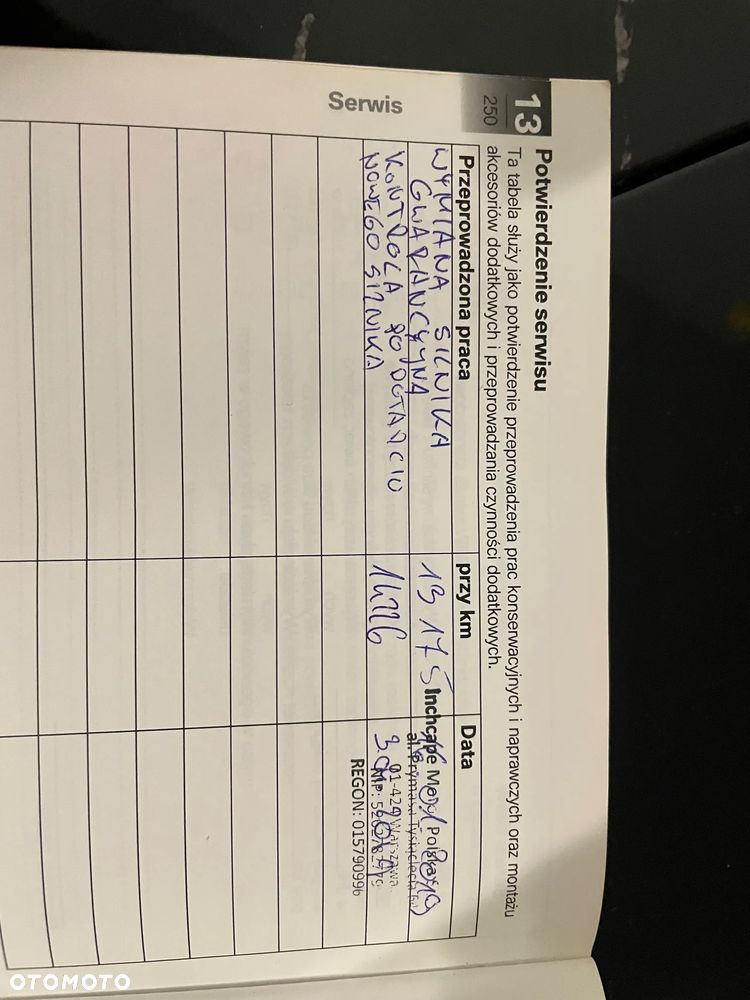 Serwis
13
250
Potwierdzenie serwisu
Ta tabela służy jako potwierdzenie przeprowadzenia prac konserwacyjnych i naprawczych oraz montażu
akcesoriów dodatkowych i przeprowadzania czynności dodatkowych.
Przeprowadzona praca przy km Data
WYMIANA SILNIKA
GWARANCYJNA 13 175
KONTROLA PO DOTARCIU
NOWEGO SILNIKA
Inchcape Motor Polska
al. Prymasa Tysiąclecia
01-424 Warszawa
NIP:
REGON: 015790996
OTOMOTO